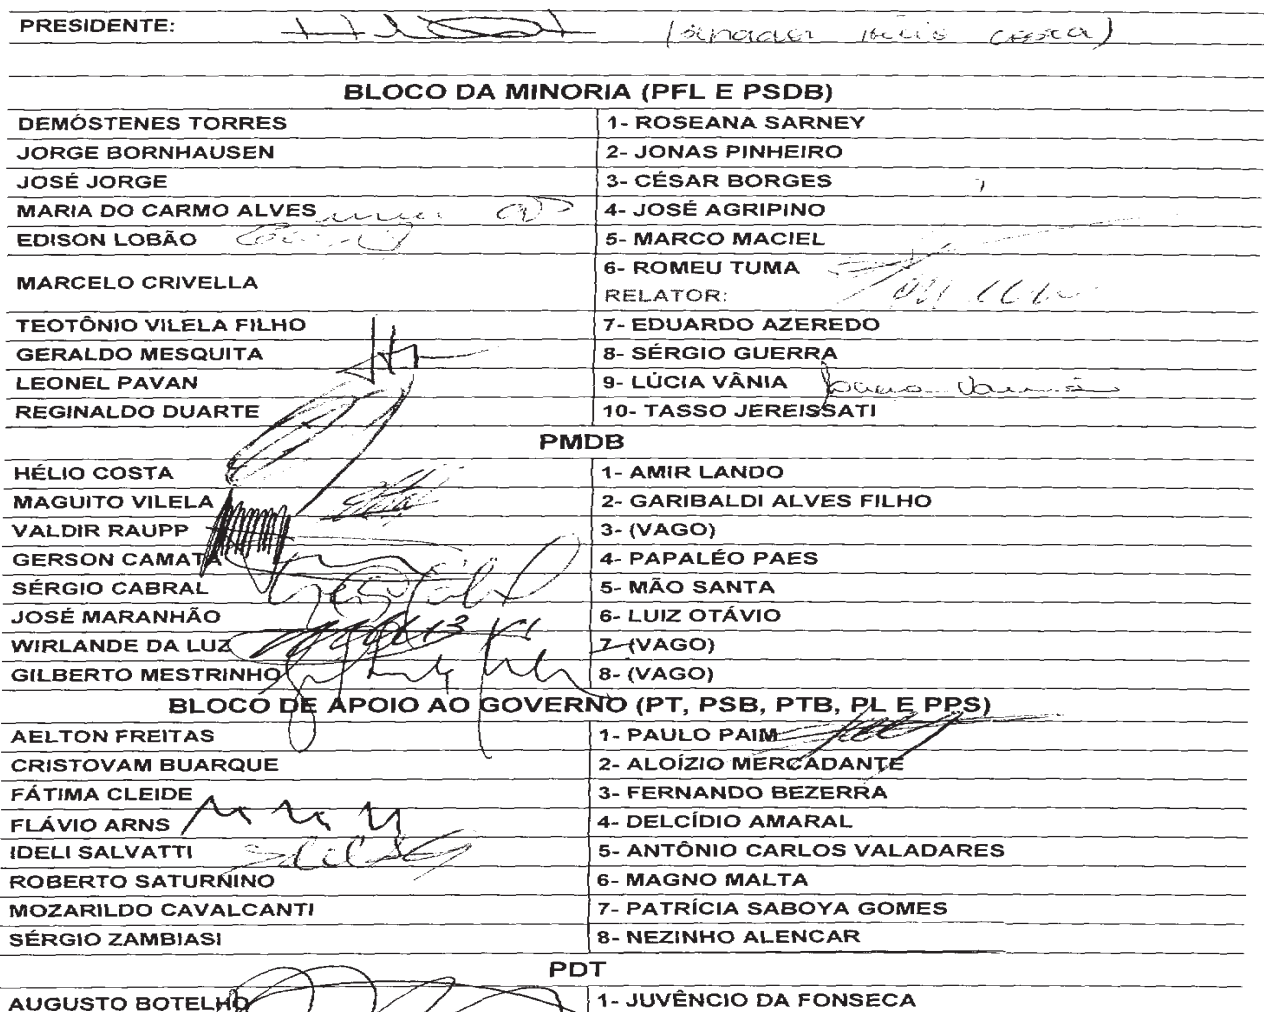 PRESIDENTE: (Senador Hélio Costa)
BLOCO DA MINORIA (PFL E PSDB)
DEMÓSTENES TORRES 1- ROSEANA SARNEY
JORGE BORNHAUSEN 2- JONAS PINHEIRO
JOSÉ JORGE 3- CÉSAR BORGES
MARIA DO CARMO ALVES 4- JOSÉ AGRIPINO
EDISON LOBÃO 5- MARCO MACIEL
MARCELO CRIVELLA 6- ROMEU TUMA
RELATOR:
TEOTÔNIO VILELA FILHO 7- EDUARDO AZEREDO
GERALDO MESQUITA 8- SÉRGIO GUERRA
LEONEL PAVAN 9- LÚCIA VÂNIA
REGINALDO DUARTE 10- TASSO JEREISSATI
PMDB
HÉLIO COSTA 1- AMIR LANDO
MAGUITO VILELA 2- GARIBALDI ALVES FILHO
VALDIR RAUPP 3- (VAGO)
GERSON CAMATA 4- PAPALÉO PAES
SÉRGIO CABRAL 5- MÃO SANTA
JOSÉ MARANHÃO 6- LUIZ OTÁVIO
WIRLANDE DA LUZ 7- (VAGO)
GILBERTO MESTRINHO 8- (VAGO)
BLOCO DE APOIO AO GOVERNO (PT, PSB, PTB, PL E PPS)
AELTON FREITAS 1- PAULO PAIM
CRISTOVAM BUARQUE 2- ALOÍZIO MERCADANTE
FÁTIMA CLEIDE 3- FERNANDO BEZERRA
FLÁVIO ARNS 4- DELCÍDIO AMARAL
IDELI SALVATTI 5- ANTÔNIO CARLOS VALADARES
ROBERTO SATURNINO 6- MAGNO MALTA
MOZARILDO CAVALCANTI 7- PATRÍCIA SABOYA GOMES
SÉRGIO ZAMBIASI 8- NEZINHO ALENCAR
PDT
AUGUSTO BOTELHO 1- JUVÊNCIO DA FONSECA